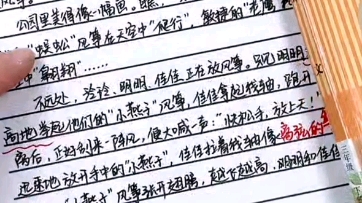 公园里美得像一幅画。瞧，
"蜈蚣"风筝在天空中"爬行"，敏捷的"老鹰"
中"翱翔"……
不远处，泠泠、明明、佳佳正在放风筝。只见明明
高地举起他们的"小燕子"风筝，佳佳拿起线轴，
隔后，正好刮来一阵风，便大喊一声："快松手，放上天！"
迅速地放开手中的"小燕子"，佳佳拉着线轴像离弦的
"小燕子"风筝张开翅膀，越飞越高，明明和佳佳
三年级